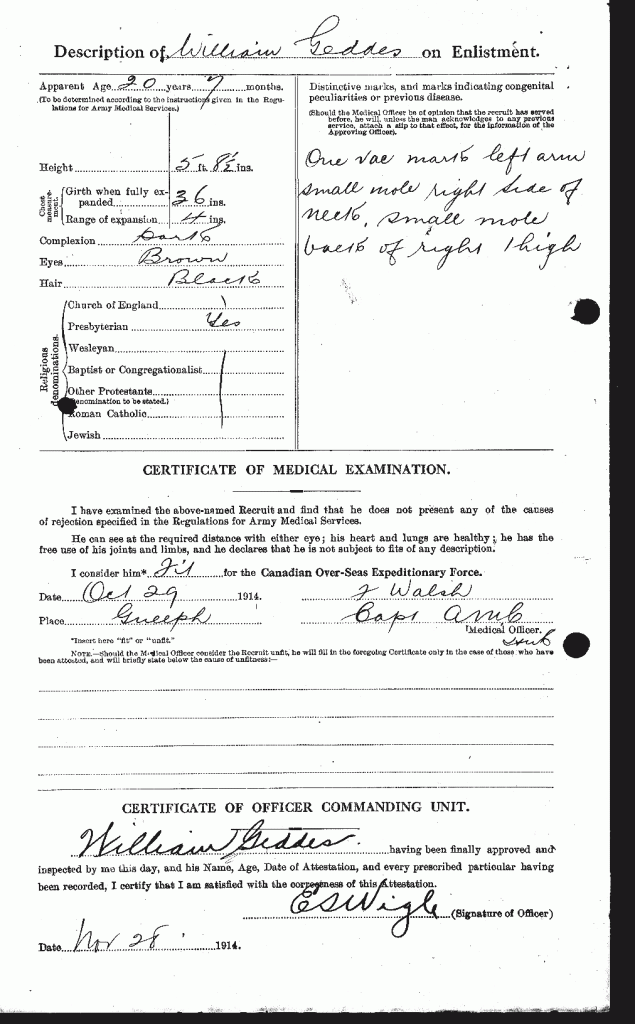 Description of William Geddes on Enlistment.
Apparent Age 20 years 7 months.
(To be determined according to the instructions given in the Regulations for Army Medical Services.)
Height 5 ft. 8½ ins.
Chest measurement.
Girth when fully expanded 36 ins.
Range of expansion 4 ins.
Complexion Dark
Eyes Brown
Hair Black
Religious denominations.
Church of England
Presbyterian Yes
Wesleyan
Baptist or Congregationalist
Other Protestants
(Denomination to be stated.)
Roman Catholic
Jewish
Distinctive marks, and marks indicating congenital
peculiarities or previous disease.
(Should the Medical Officer be of opinion that the recruit has served
before, he will, unless the man acknowledges to any previous
service, attach a slip to that effect, for the information of the
Approving Officer).
One vac mark left arm
small mole right side of
neck, small mole
back of right thigh
CERTIFICATE OF MEDICAL EXAMINATION.
I have examined the above-named Recruit and find that he does not present any of the causes
of rejection specified in the Regulations for Army Medical Services.
He can see at the required distance with either eye; his heart and lungs are healthy; he has the
free use of his joints and limbs, and he declares that he is not subject to fits of any description.
I consider him* Fit for the Canadian Over-Seas Expeditionary Force.
Date Oct 29 1914. Walsh
Place Guelph Capt AMC
Medical Officer.
*Insert here "fit" or "unfit."
NOTE.—Should the Medical Officer consider the Recruit unfit, he will fill in the foregoing Certificate only in the case of those who have
been attested, and will briefly state below the cause of unfitness:—
CERTIFICATE OF OFFICER COMMANDING UNIT.
William Geddes. having been finally approved and
inspected by me this day, and his Name, Age, Date of Attestation, and every prescribed particular having
been recorded, I certify that I am satisfied with the correctness of this Attestation.
E S Wigle (Signature of Officer)
Date Nov 28 1914.